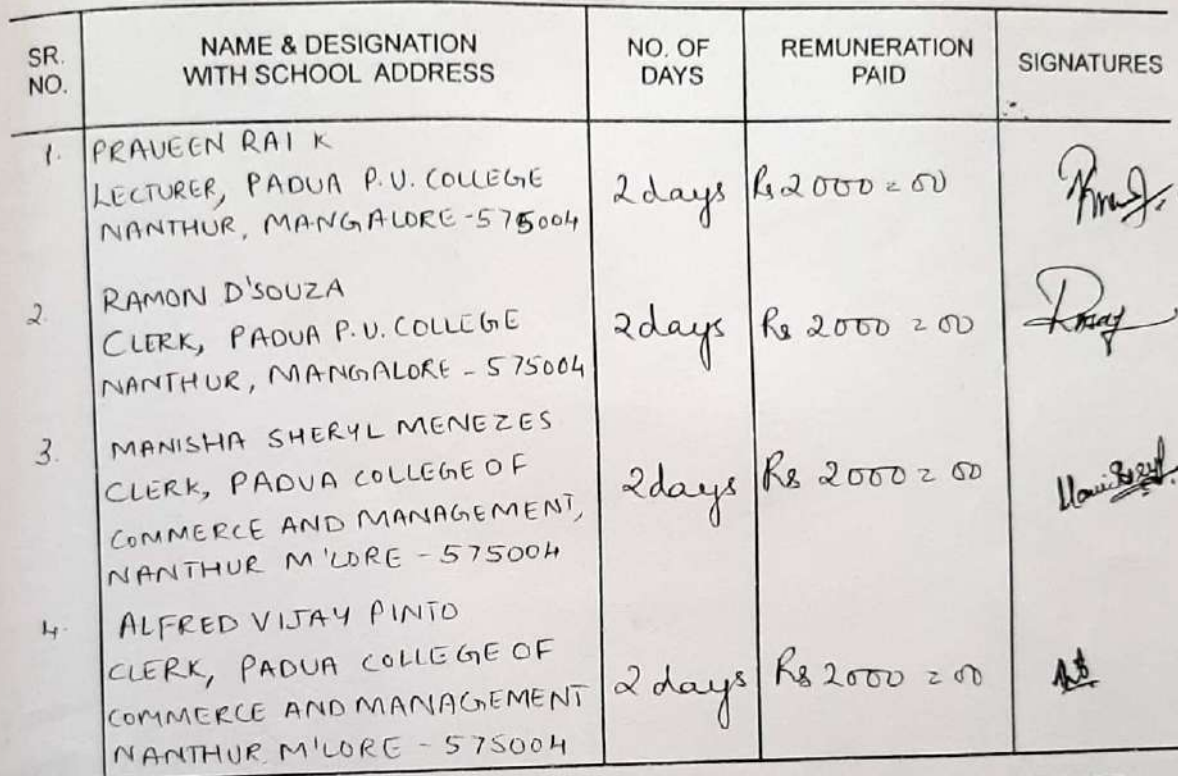 SR. NO.
NAME & DESIGNATION WITH SCHOOL ADDRESS
NO. OF DAYS
REMUNERATION PAID
SIGNATURES
1.
PRAVEEN RAI K
LECTURER, PADUA P.U. COLLEGE
NANTHUR, MANGALORE - 575004
2 days
Rs 2000 = 00
2.
RAMON D'SOUZA
CLERK, PADUA P.U. COLLEGE
NANTHUR, MANGALORE - 575004
2 days
Rs 2000 = 00
3.
MANISHA SHERYL MENEZES
CLERK, PADUA COLLEGE OF
COMMERCE AND MANAGEMENT,
NANTHUR M'LORE - 575004
2 days
Rs 2000 = 00
4.
ALFRED VIJAY PINTO
CLERK, PADUA COLLEGE OF
COMMERCE AND MANAGEMENT
NANTHUR M'LORE - 575004
2 days
Rs 2000 = 00